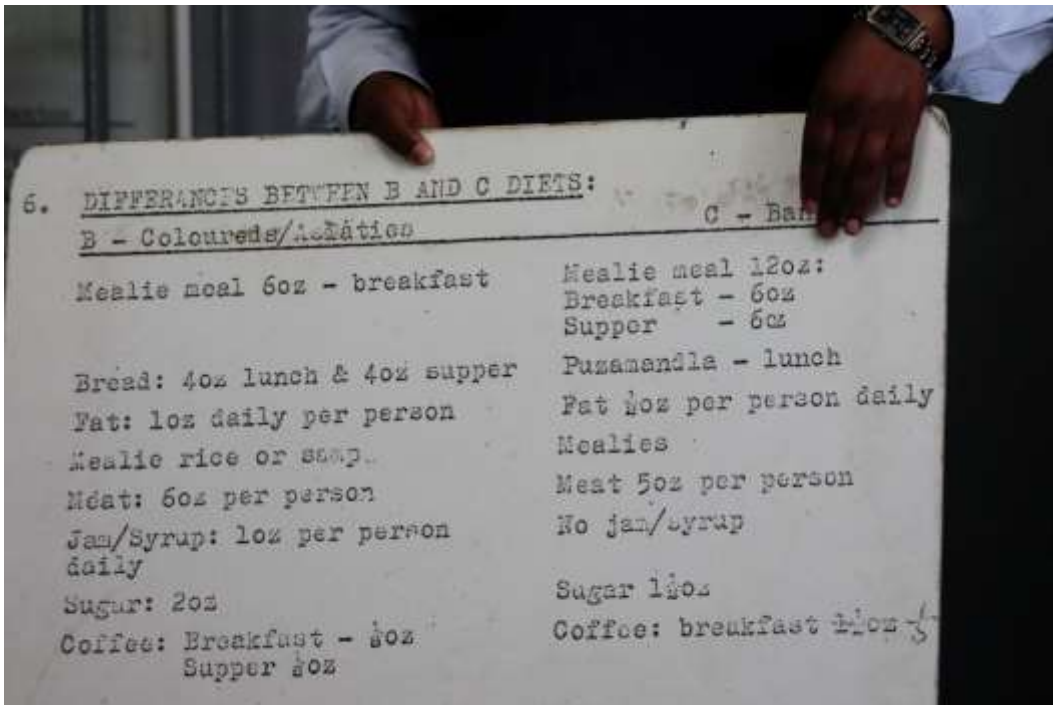 6. DIFFERANCIS BETWEEN B AND C DIETS:
B - Coloureds/Asiatics
C - Ban
Mealie meal 6oz - breakfast
Bread: 4oz lunch & 4oz supper
Fat: 1oz daily per person
Mealie rice or samp.
Meat: 6oz per person
Jam/Syrup: 1oz per person
daily
Sugar: 2oz
Coffee: Breakfast - ½oz
Supper ½oz
Mealie meal 12oz:
Breakfast - 6oz
Supper - 6oz
Puzamandla - lunch
Fat ½oz per person daily
Mealies
Meat 5oz per person
No jam/syrup
Sugar 1½oz
Coffee: breakfast